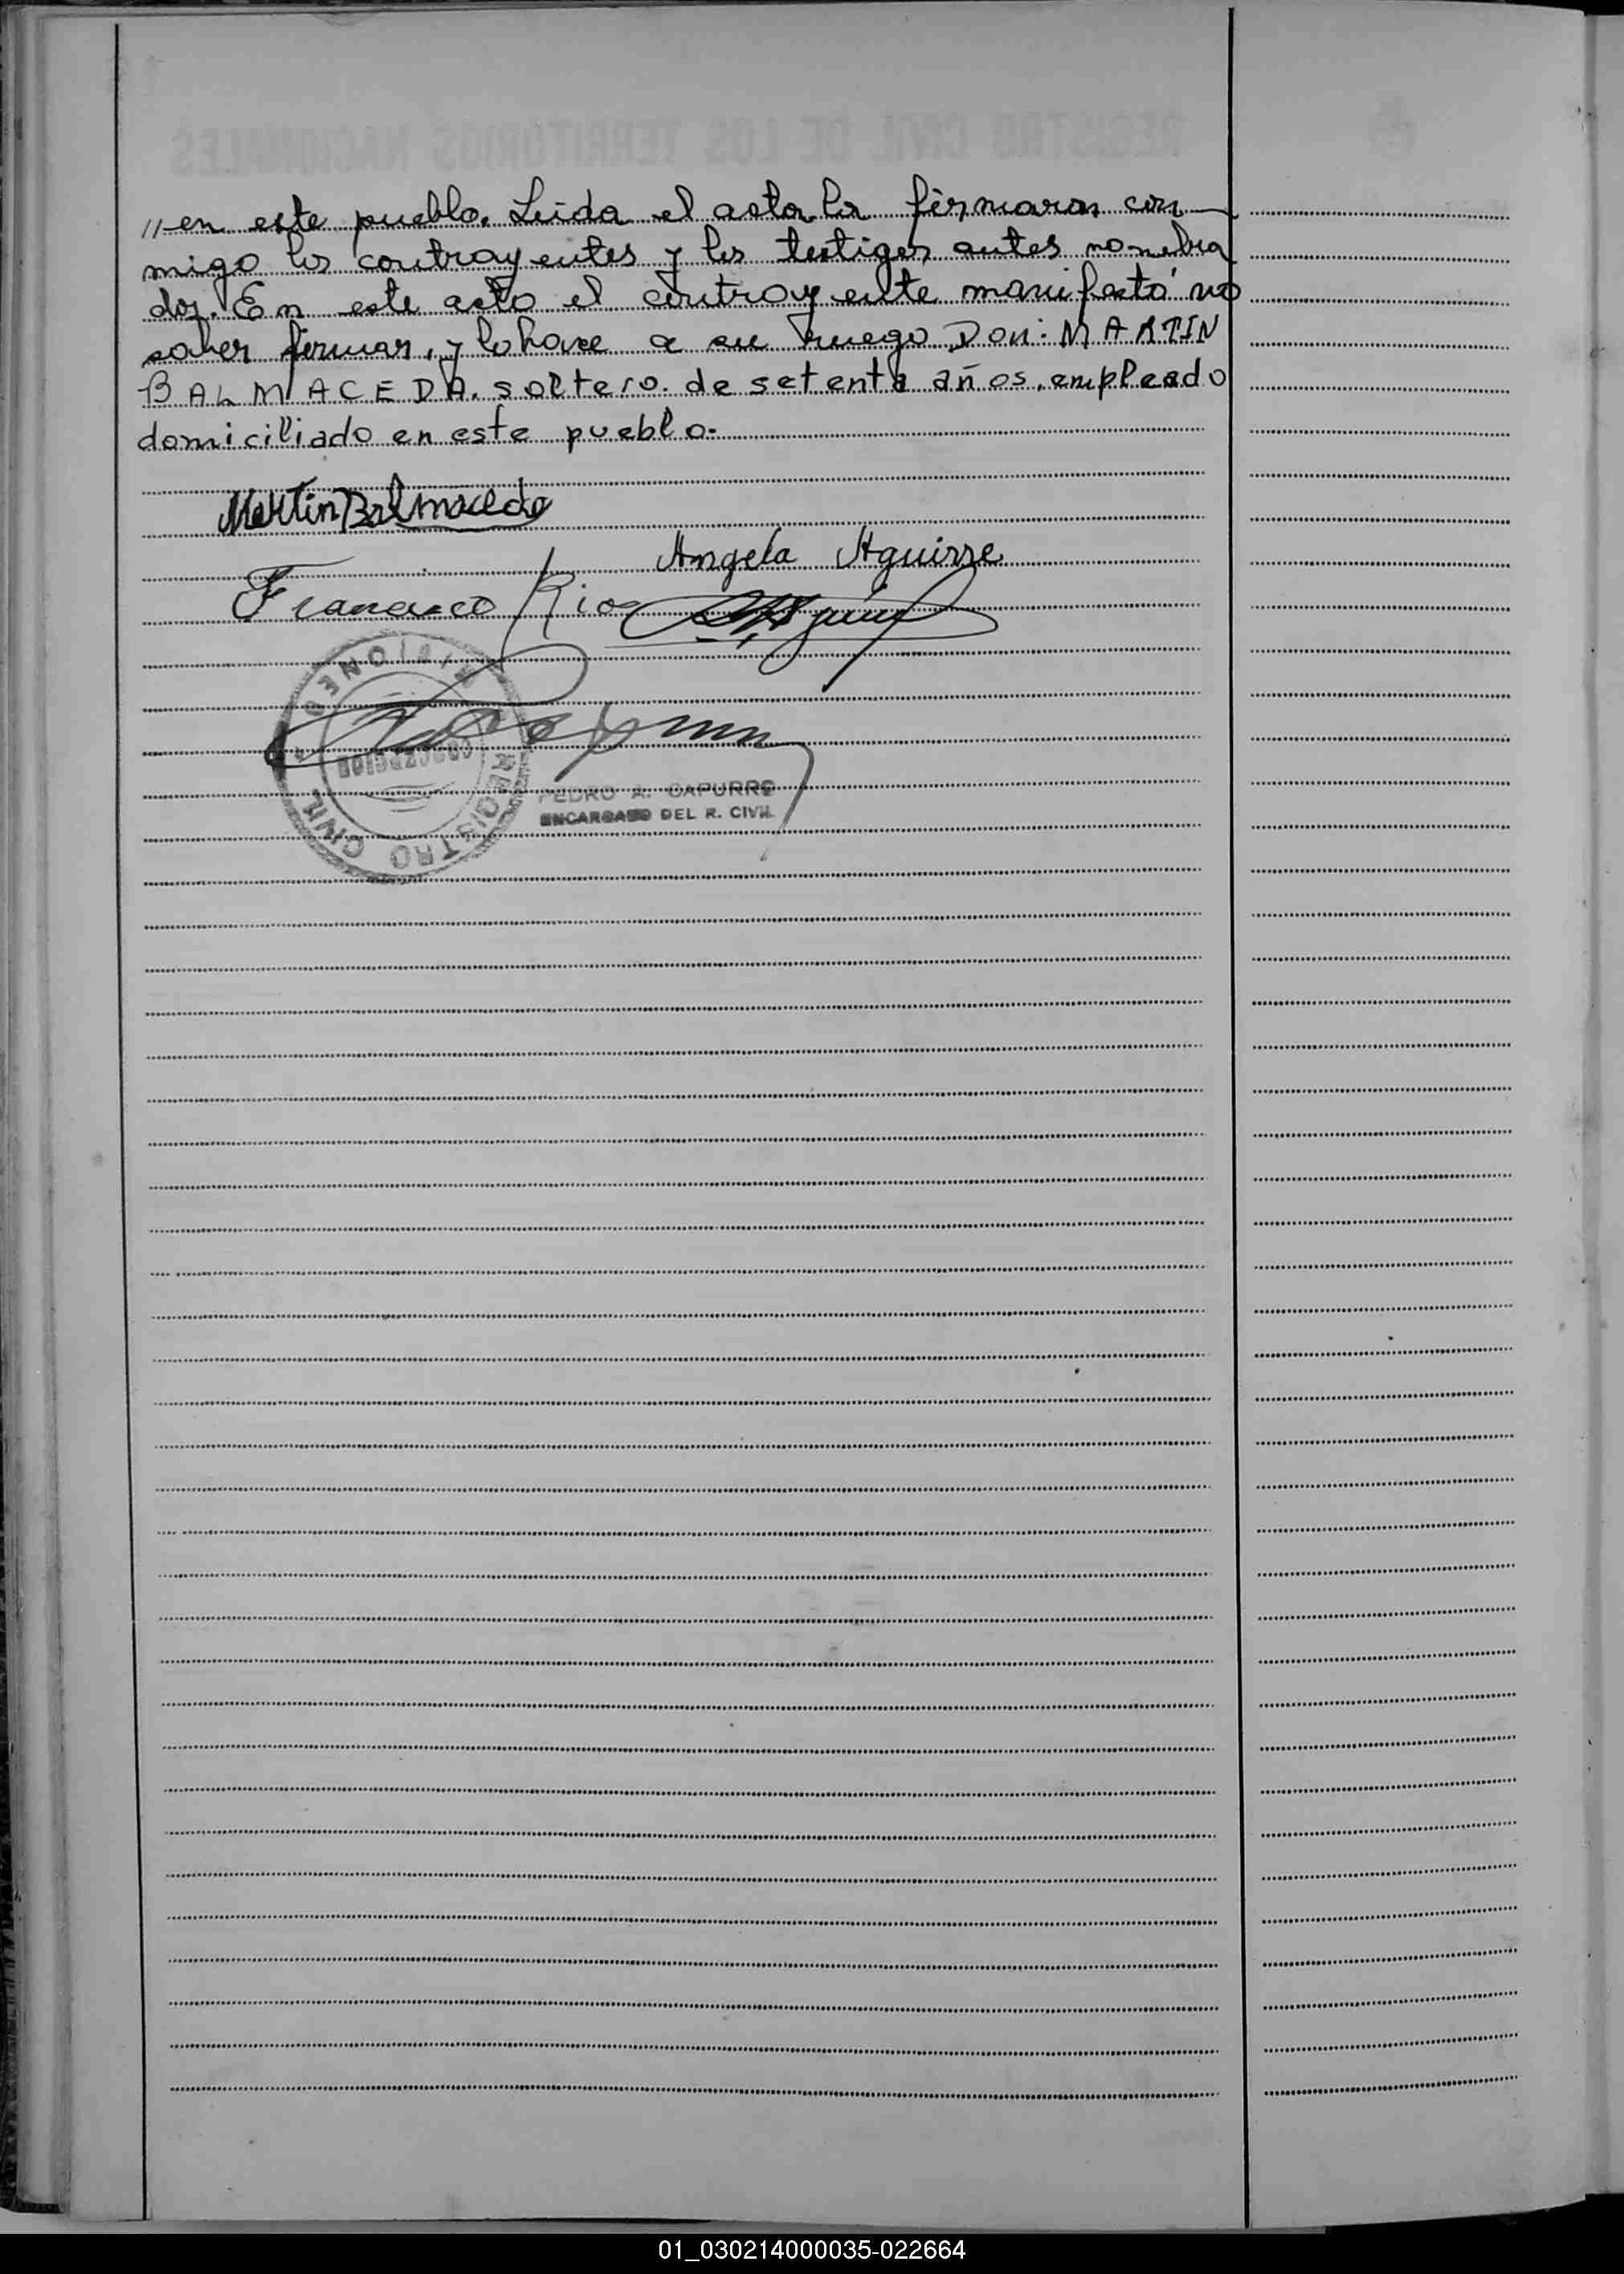 // en este pueblo. Leida el acta la firmaron con-
migo los contrayentes y los testigos antes nombra
dos. En este acto el contrayente manifestó no
saber firmar, y lo hace a su ruego Don: MARTIN
BALMACEDA. soltero. de setenta años. empleado
domiciliado en este pueblo.
Martin Balmaceda
Angela Aguirre
Francisco Rios
MISIONES
CONCEPCION
REGISTRO CIVIL
PEDRO A. CAPURRO
ENCARGADO DEL R. CIVIL
01_030214000035-022664